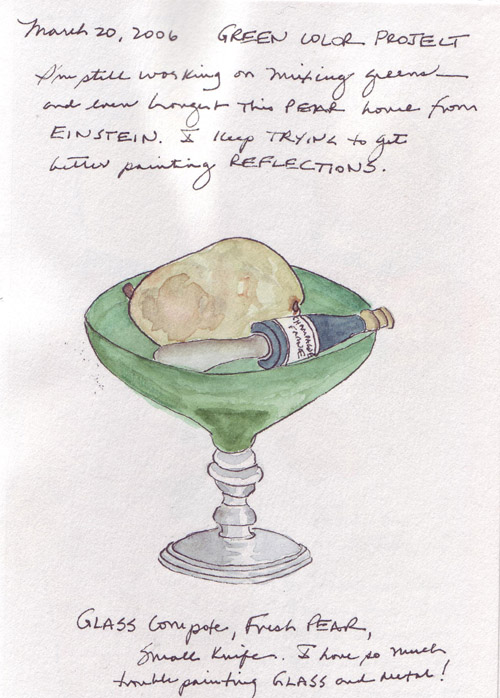 March 20, 2006 GREEN COLOR PROJECT
I'm still working on mixing greens—
and even brought this PEAR home from
EINSTEIN. I keep TRYING to get
better painting REFLECTIONS.
GLASS Compote, Fresh PEAR,
Small Knife. I have so much
trouble painting GLASS and metal!